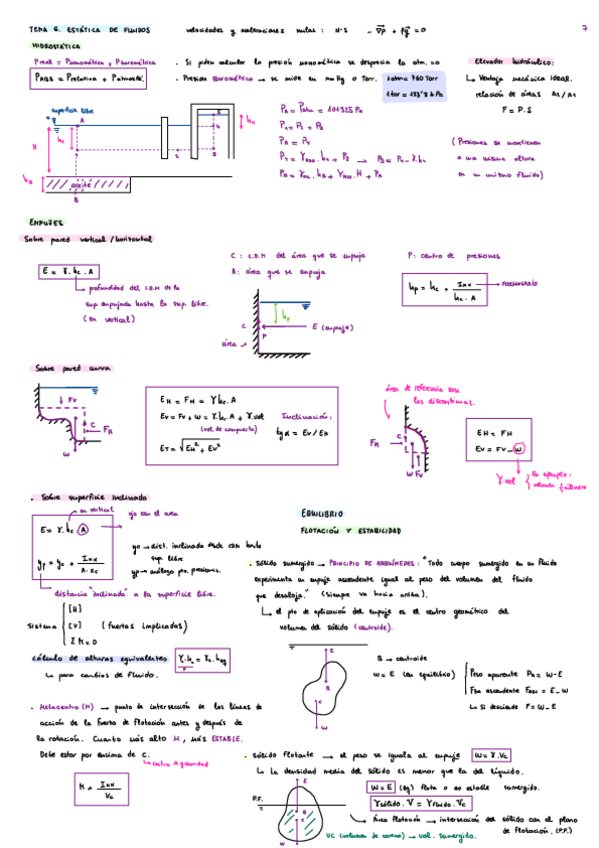 TEMA 6. ESTÁTICA DE FLUIDOS velocidades y aceleraciones nulas: N-S -∇p + ρg = 0
7
HIDROSTÁTICA
Preal = Pmanométrica + Pbarométrica
Pabs = Prelativa + Patmosfé.
. Si piden calcular la presión manométrica se desprecia la atm. = 0
. Presión barométrica → se mide en mmHg o Torr.
1atm = 760 Torr
1 torr = 133'3 Pa
Elevador hidráulico:
↳ Ventaja mecánica ideal.
relación de áreas A2/A1
F = P.S
superficie libre
A
H
hc
aceite
B
PA = Patm = 101325 Pa
P1 = P2 = P3
(Presiones se mantienen
a una misma altura
en un mismo fluido)
EMPUJES
Sobre pared vertical/horizontal
E = γ.hc.A
profundidad del C.D.M de la
sup empujada hasta la sup. libre.
(en vertical)
C: C.D.M del área que se empuja
A: área que se empuja
P: centro de presiones
hp = hc + Ixx / hc.A
FORMULARIO
hp
C
P
E (empuje)
área
Sobre pared curva
Fv
C
FH
W
EH = FH = γhc.A
Ev = Fv + W = γ.hc.A + γ.vol
(vol. de compuerta)
ET = √EH² + Ev²
Inclinación:
tgα = Ev/EH
área de referencia son
las discontinuas.
FH
C
W Fv
EH = FH
Ev = Fv - W
γ.vol
En ejemplo:
. Sobre superficie inclinada
en vertical
ojo con el área
E = γ.hc.A
yp = yc + Ixx / A.xc
sup. libre
distancia "inclinada" a la superficie libre.
Sistema
[H]
[V] (fuerzas implicadas)
ΣM = 0
cálculo de alturas equivalentes
↳ para cambios de fluido.
. Metacentro (M) → punto de intersección de las líneas de
acción de la fuerza de flotación antes y después de
la rotación. Cuanto más alto M, más ESTABLE.
Debe estar por encima de C.
↳ centro de gravedad
M = Ixx / Vc
EQUILIBRIO
FLOTACIÓN Y ESTABILIDAD
. sólido sumergido → PRINCIPIO DE ARQUÍMEDES: "Todo cuerpo sumergido en un fluido
experimenta un empuje ascendente igual al peso del volumen del fluido
que desaloja." (siempre va hacia arriba).
↳ el pto de aplicación del empuje es el centro geométrico del
volumen del sólido (centroide).
E
B
C
W
B → centroide
W = E (en equilibrio)
Peso aparente PA = W - E
Fza ascendente Fasc = E - W
↳ Si desciende F = W - E
. sólido flotante → el peso se iguala al empuje W = γ.Vc
↳ La densidad media del sólido es menor que la del líquido.
W = E (eq) flota o no estable sumergido.
γsólido.V = γfluido.Vc
↳ Área flotación → intersección del sólido con el plano
de flotación. (P.F.)
P.F.
E
B
C
W
VC (volumen de carena) → vol. sumergido.